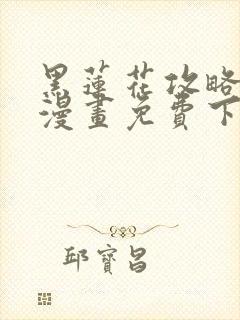 黑蓮花攻略
漫畫免費下
邱寶昌